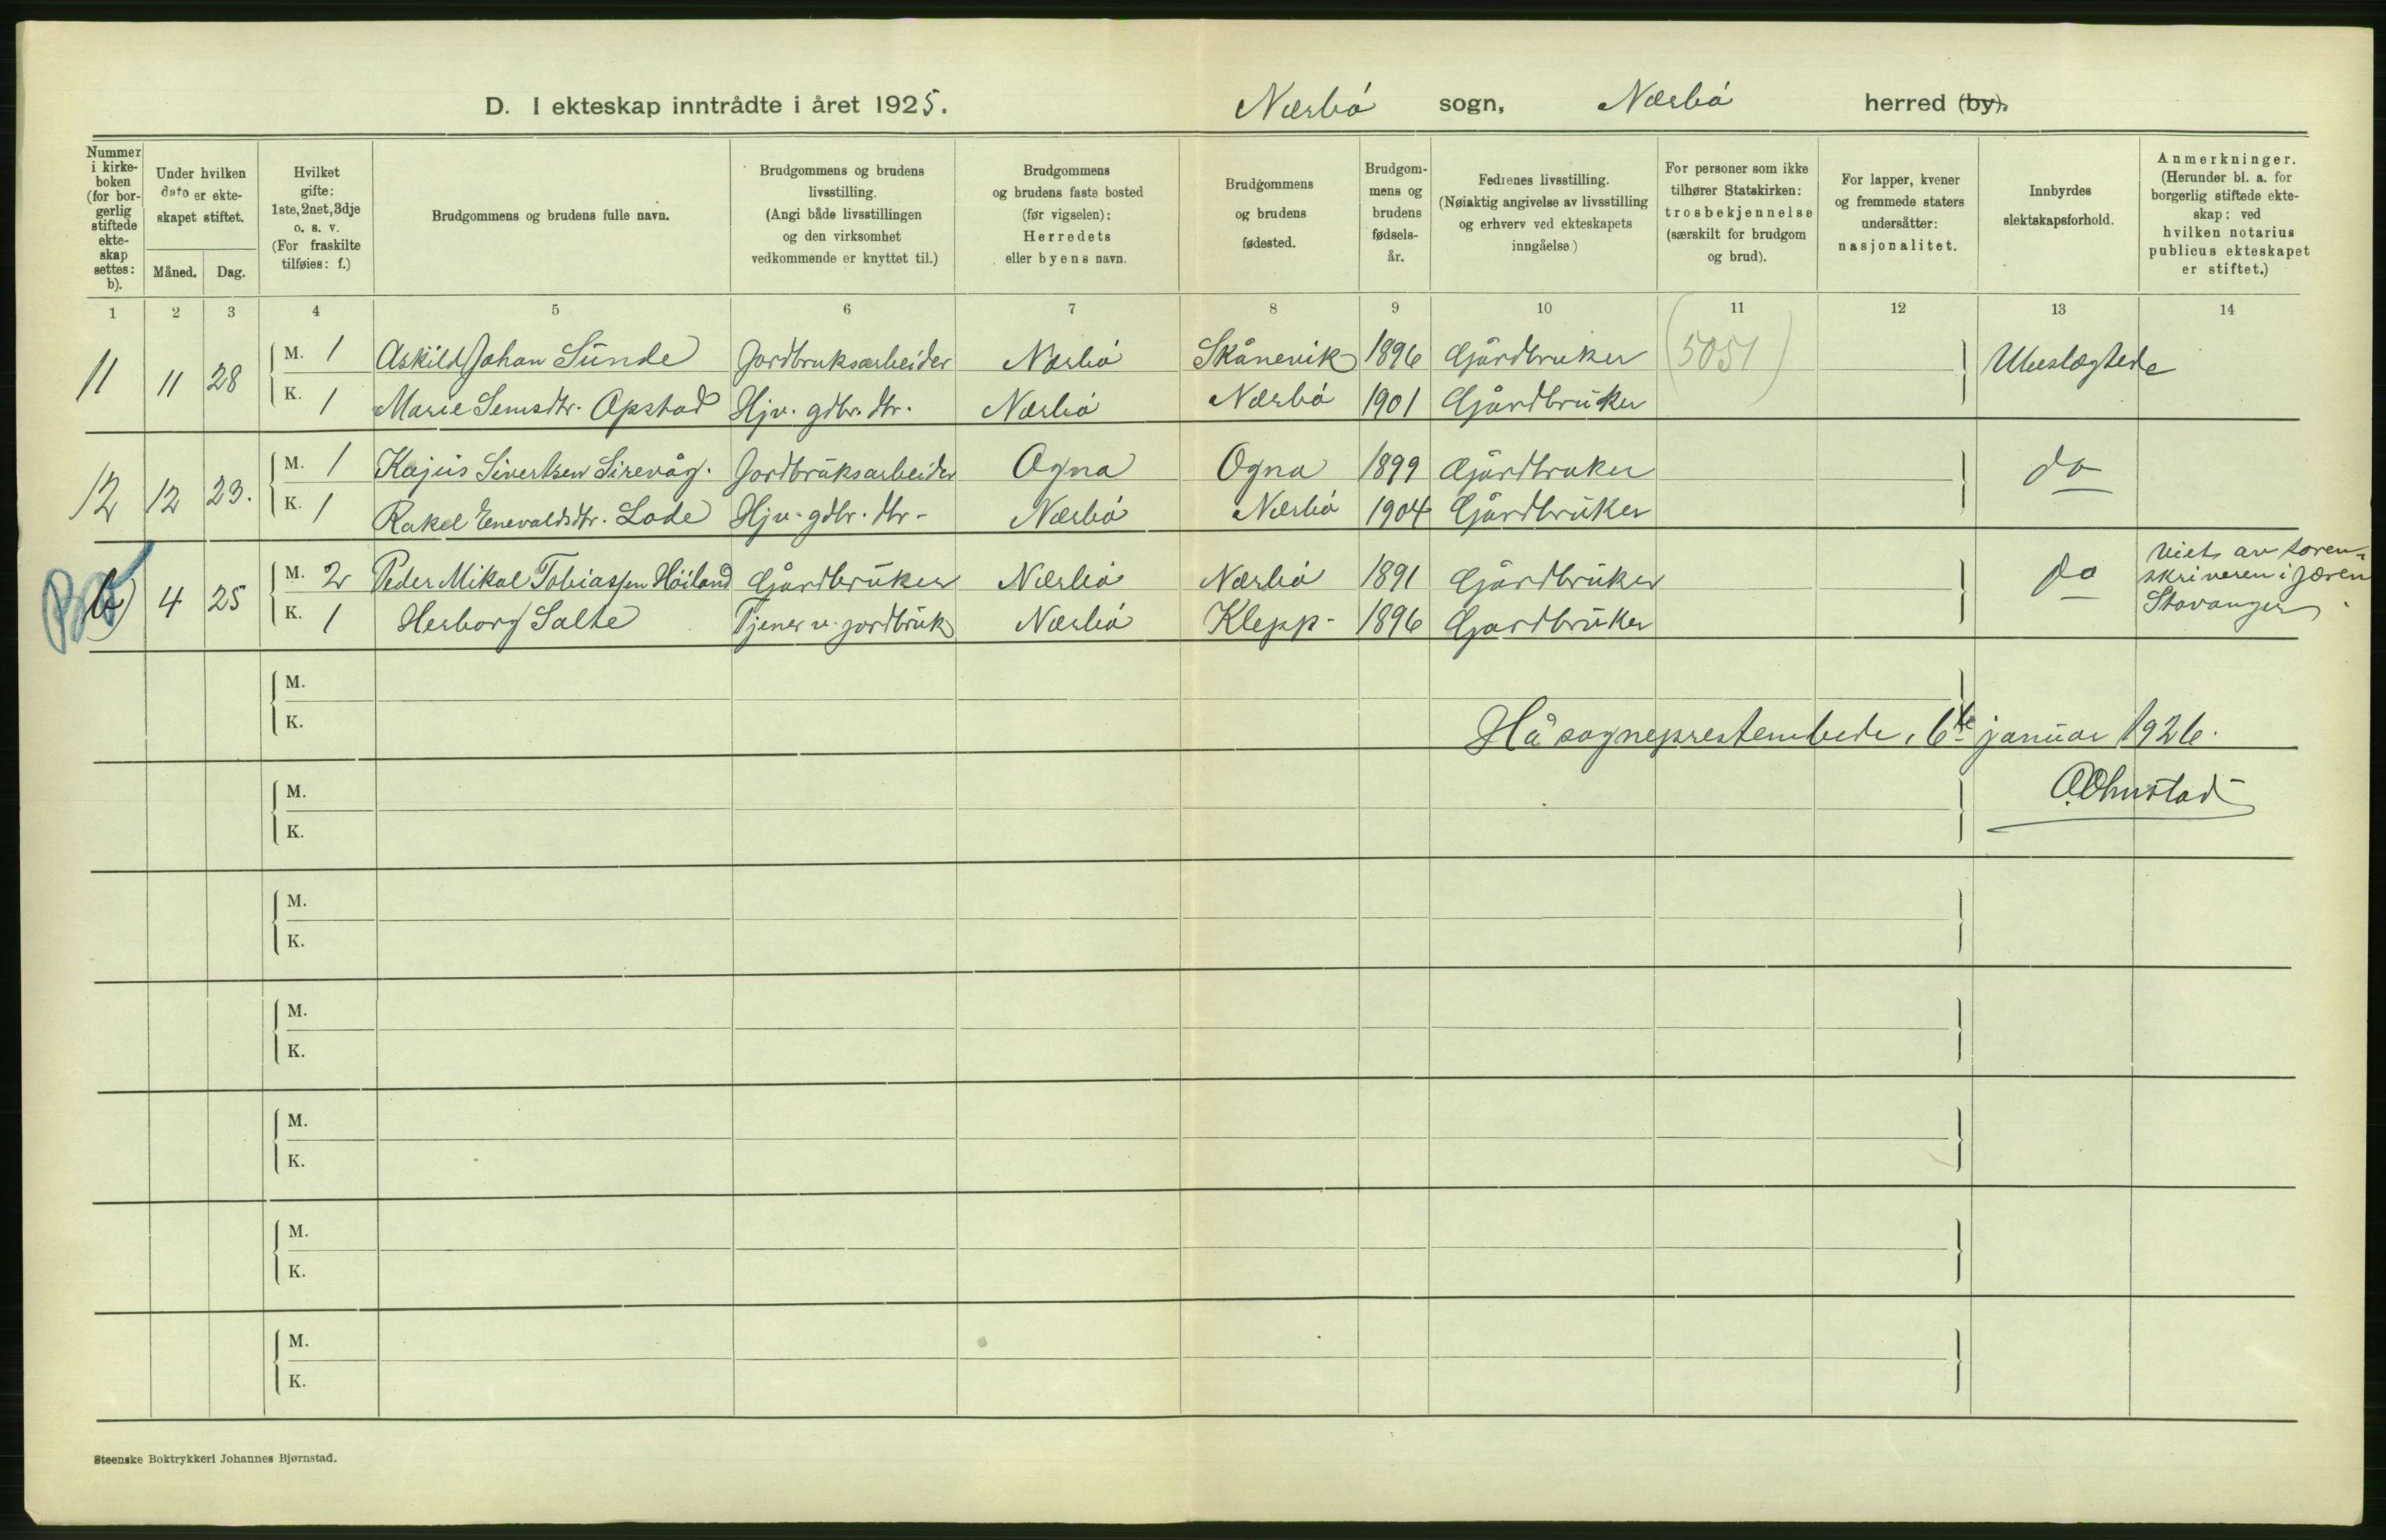 D. I ekteskap inntrådte i året 1925. Nærbö sogn, Nærbö herred (by).
Nummer i kirke-boken (for bor-gerlig stiftede ekte-skap settes: b).
Under hvilken dato er ekte-skapet stiftet.
Måned. Dag.
Hvilket gifte: 1ste, 2net, 3dje o. s. v. (For fraskilte tilføies: f.)
Brudgommens og brudens fulle navn.
Brudgommens og brudens livsstilling. (Angi både livsstillingen og den virksomhet vedkommende er knyttet til.)
Brudgommens og brudens faste bosted (før vigselen): Herredets eller byens navn.
Brudgommens og brudens fødested.
Brudgom-mens og brudens fødsels-år.
Fedrenes livsstilling. (Nøiaktig angivelse av livsstilling og erhverv ved ekteskapets inngåelse.)
For personer som ikke tilhører Statskirken: trosbekjennelse (særskilt for brudgom og brud).
For lapper, kvener og fremmede staters undersåtter: nasjonalitet.
Innbyrdes slektskapsforhold.
Anmerkninger. (Herunder bl. a. for borgerlig stiftede ekte-skap: ved hvilken notarius publicus ekteskapet er stiftet.)
1 2 3 4 5 6 7 8 9 10 11 12 13 14
11 11 28 M. 1 Askild Johan Sunde Jordbruksarbeider Nærbö Skånevik 1896 Gårdbruker (5051) Ubeslægtede
K. 1 Marie Semsdtr. Opstad Hjv. gdbr. dtr. Nærbö Nærbö 1901 Gårdbruker
12 12 23. M. 1 Kajus Sivertsen Sirevåg. Jordbruksarbeider Ogna Ogna 1899 Gårdbruker do
K. 1 Rakel Enevaldsdtr. Lode Hjv. gdbr. dtr. Nærbö Nærbö 1904 Gårdbruker
b) 4 25 M. 2 Peder Mikal Tobiassen Höiland Gårdbruker Nærbö Nærbö 1891 Gårdbruker do Viet av soren-
skriveren i Jæren
K. 1 Herborg Salte Tjener v. jordbruk Nærbö Klepp - 1896 Gardbruker Stavanger.
M.
K.
Hå sogneprestembede, 6te januar 1926.
M.
K.
M.
K.
M.
K.
M.
K.
M.
K.
M.
K.
Steenske Boktrykkeri Johannes Bjørnstad.